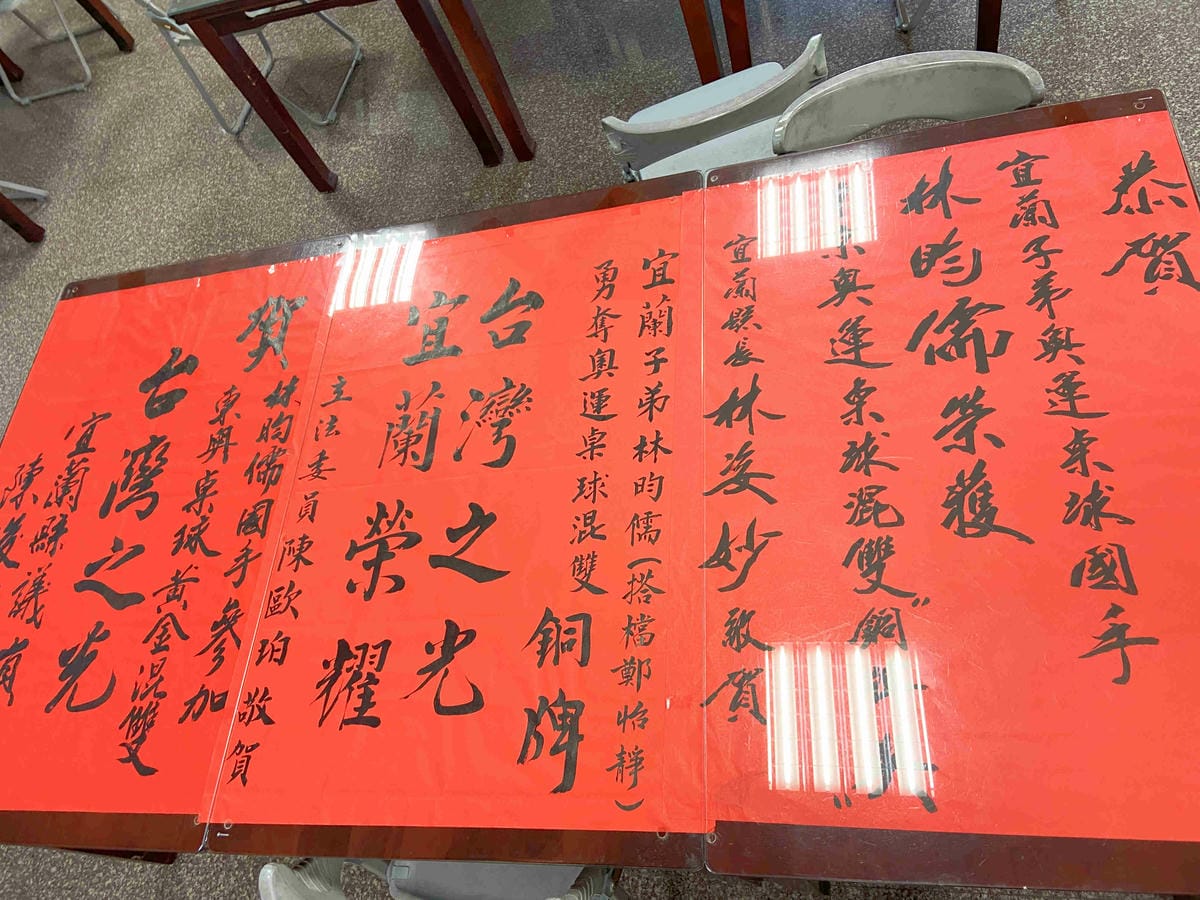 恭賀
宜蘭子弟奧運桌球國手
林昀儒榮獲
京奧運桌球混雙"銅
宜蘭縣長林姿妙敬賀
宜蘭子弟林昀儒(搭檔鄭怡靜)
勇奪奧運桌球混雙銅牌
台灣之光
宜蘭榮耀
立法委員陳歐珀敬賀
賀林昀儒國手參加
東奧桌球黃金混雙
台灣之光
宜蘭縣議
陳